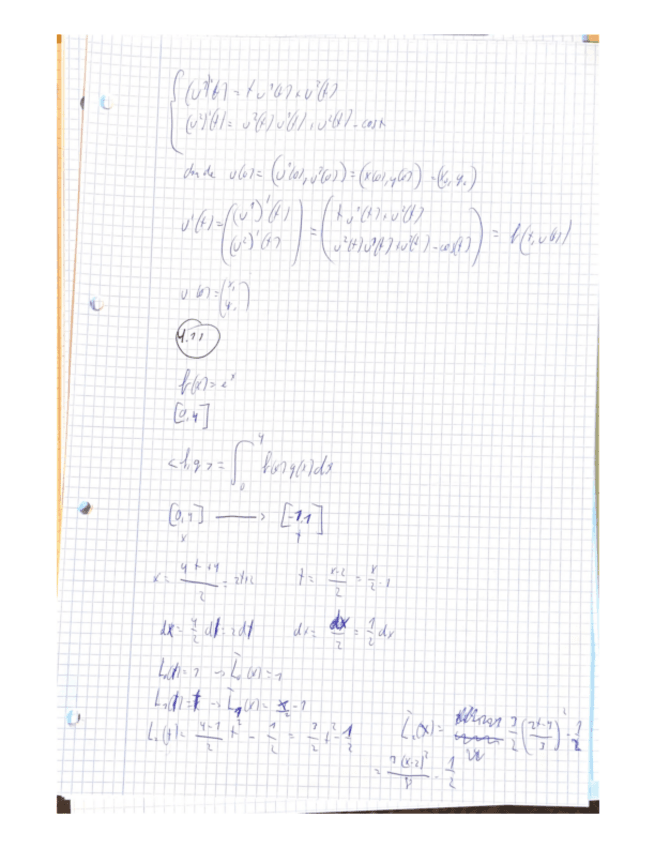 (u¹)'(t) = t u¹(t) + u²(t)
(u²)'(t) = u²(t) u¹(t) + u²(t) - cos t
donde u(0) = (u¹(0), u²(0)) = (x(0), y(0)) = (x₀, y₀)
u'(t) = ((u¹)'(t) (u²)'(t)) = (t u¹(t) + u²(t) u²(t) u¹(t) + u²(t) - cos(t)) = f(t, u(t))
u(0) = (x₀ y₀)
4.11
f(x) = eˣ
[0,4]
<f,g> = ∫₀⁴ f(x) g(x) dx
[0,4] → [-1,1]
x t
x = (4t+4)/2 = 2t+2 t = (x-2)/2 = x/2 - 1
dx = 4/2 dt = 2dt dt = dx/2 = 1/2 dx
L₀(t) = 1 → L̃₀(x) = 1
L₁(t) = t → L̃₁(x) = x/2 - 1
L₂(t) = (4-1)/2 t² - 1/2 = 3/2 t² - 1/2 L̃₂(x) = 3/2 ( )² - 1/2
= 3(x-2)²/8 - 1/2